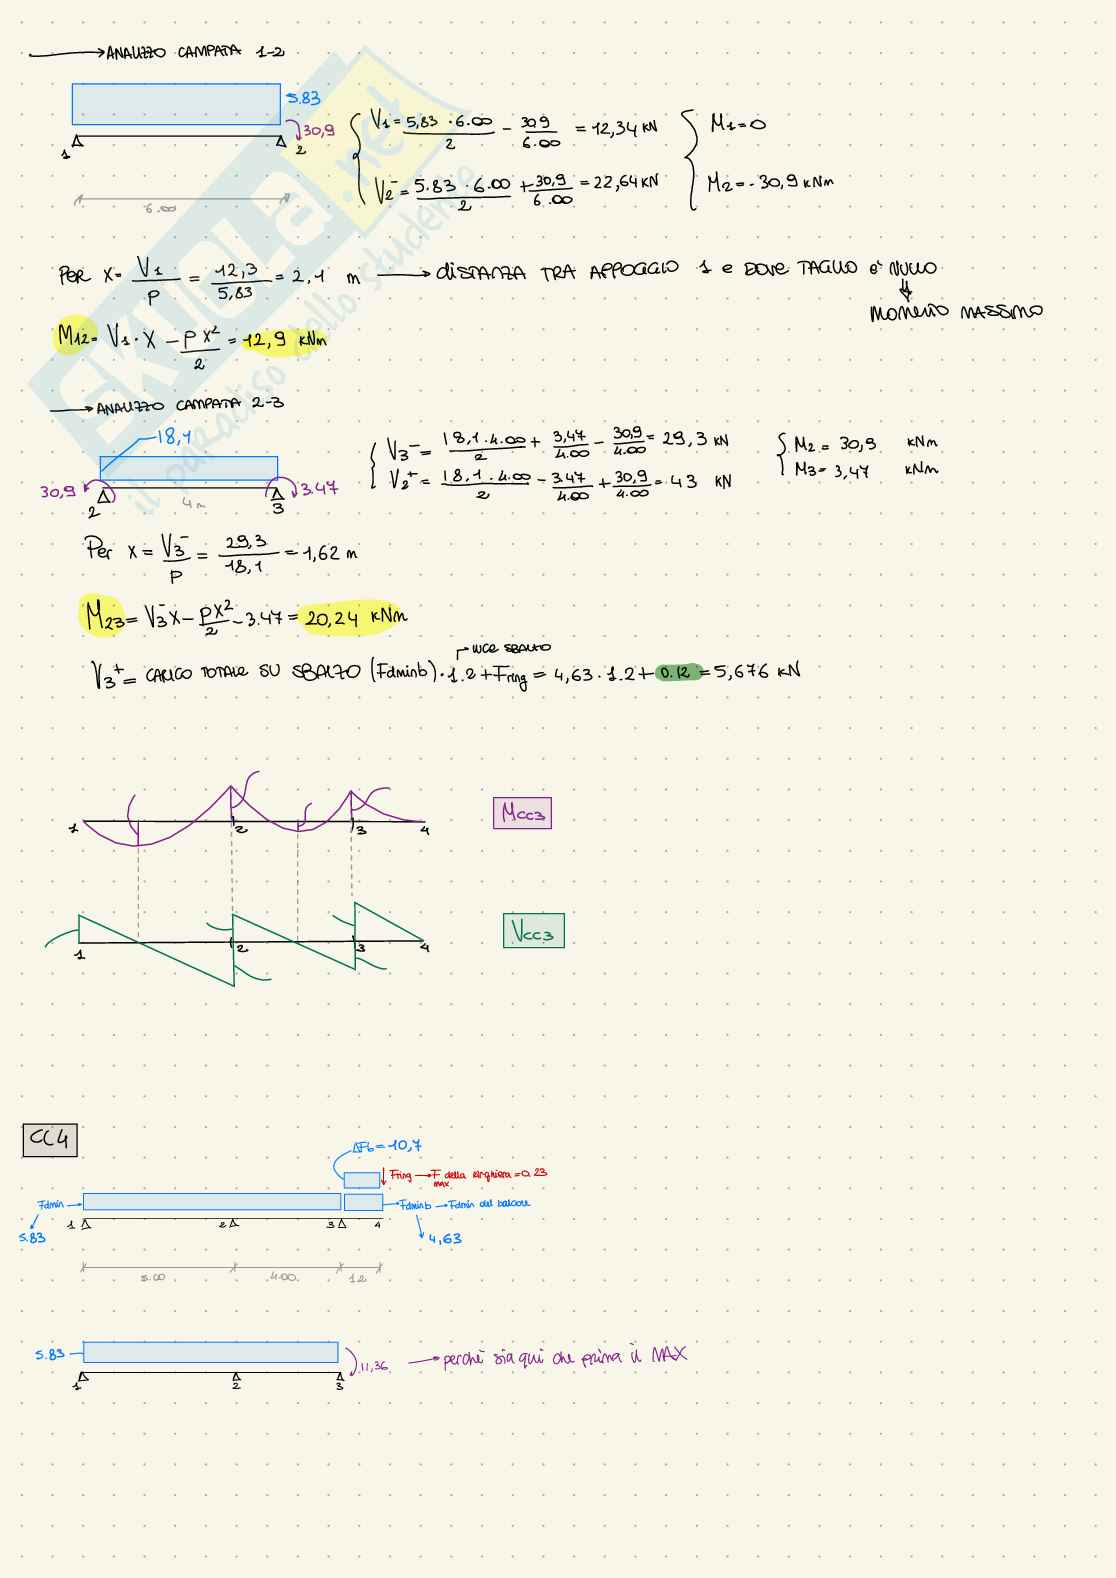 → ANALIZZO CAMPATA 1-2
5.83
30,9
1
2
6.00
V1 = 5,83 · 6.00 / 2 - 30,9 / 6.00 = 12,34 kN
M1 = 0
V2⁻ = 5.83 · 6.00 / 2 + 30,9 / 6.00 = 22,64 kN
M2 = - 30,9 kNm
PER X = V1 / P = 12,3 / 5,83 = 2,1 m → DISTANZA TRA APPOGGIO 1 e DOVE TAGLIO e' NULLO
⇓
MOMENTO MASSIMO
M12 = V1 · X - PX² / 2 = 12,9 kNm
→ ANALIZZO CAMPATA 2-3
18,1
30,9
3.47
2
4 m
3
V3⁻ = 18,1 . 4.00 / 2 + 3,47 / 4.00 - 30,9 / 4.00 = 29,3 kN
M2 = 30,9 kNm
V2⁺ = 18,1 . 4.00 / 2 - 3.47 / 4.00 + 30,9 / 4.00 = 43 kN
M3 = 3,47 kNm
Per X = V3⁻ / P = 29,3 / 18,1 = 1,62 m
M23 = V3⁻X - PX² / 2 - 3.47 = 20,24 kNm
LUCE SBALZO
V3⁺ = CARICO TOTALE SU SBALZO (Fdminb) · 1.2 + Fring = 4,63 · 1.2 + 0.12 = 5,676 kN
1 2 3 4
Mcc3
1 2 3 4
Vcc3
CC4
ΔFb = 10,7
Fring max → F della ringhiera = 0.23
Fdmin
Fdminb → Fdmin del balcone
1 2 3 4
5.83
4,63
5.00 4.00 1.2
5.83
11,36 → perché sia qui che prima il MAX
1 2 3
SKUOLA.net
il paradiso dello studente